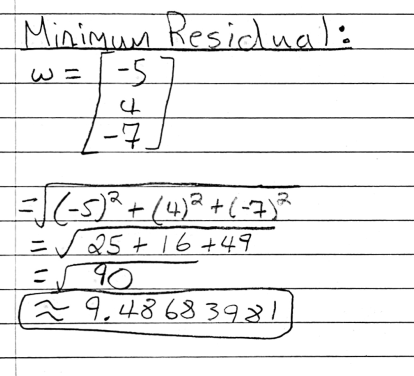 Minimum Residual:
w = [-5
4
-7]
= √(-5)² + (4)² + (-7)²
= √25 + 16 + 49
= √90
≈ 9.48683981